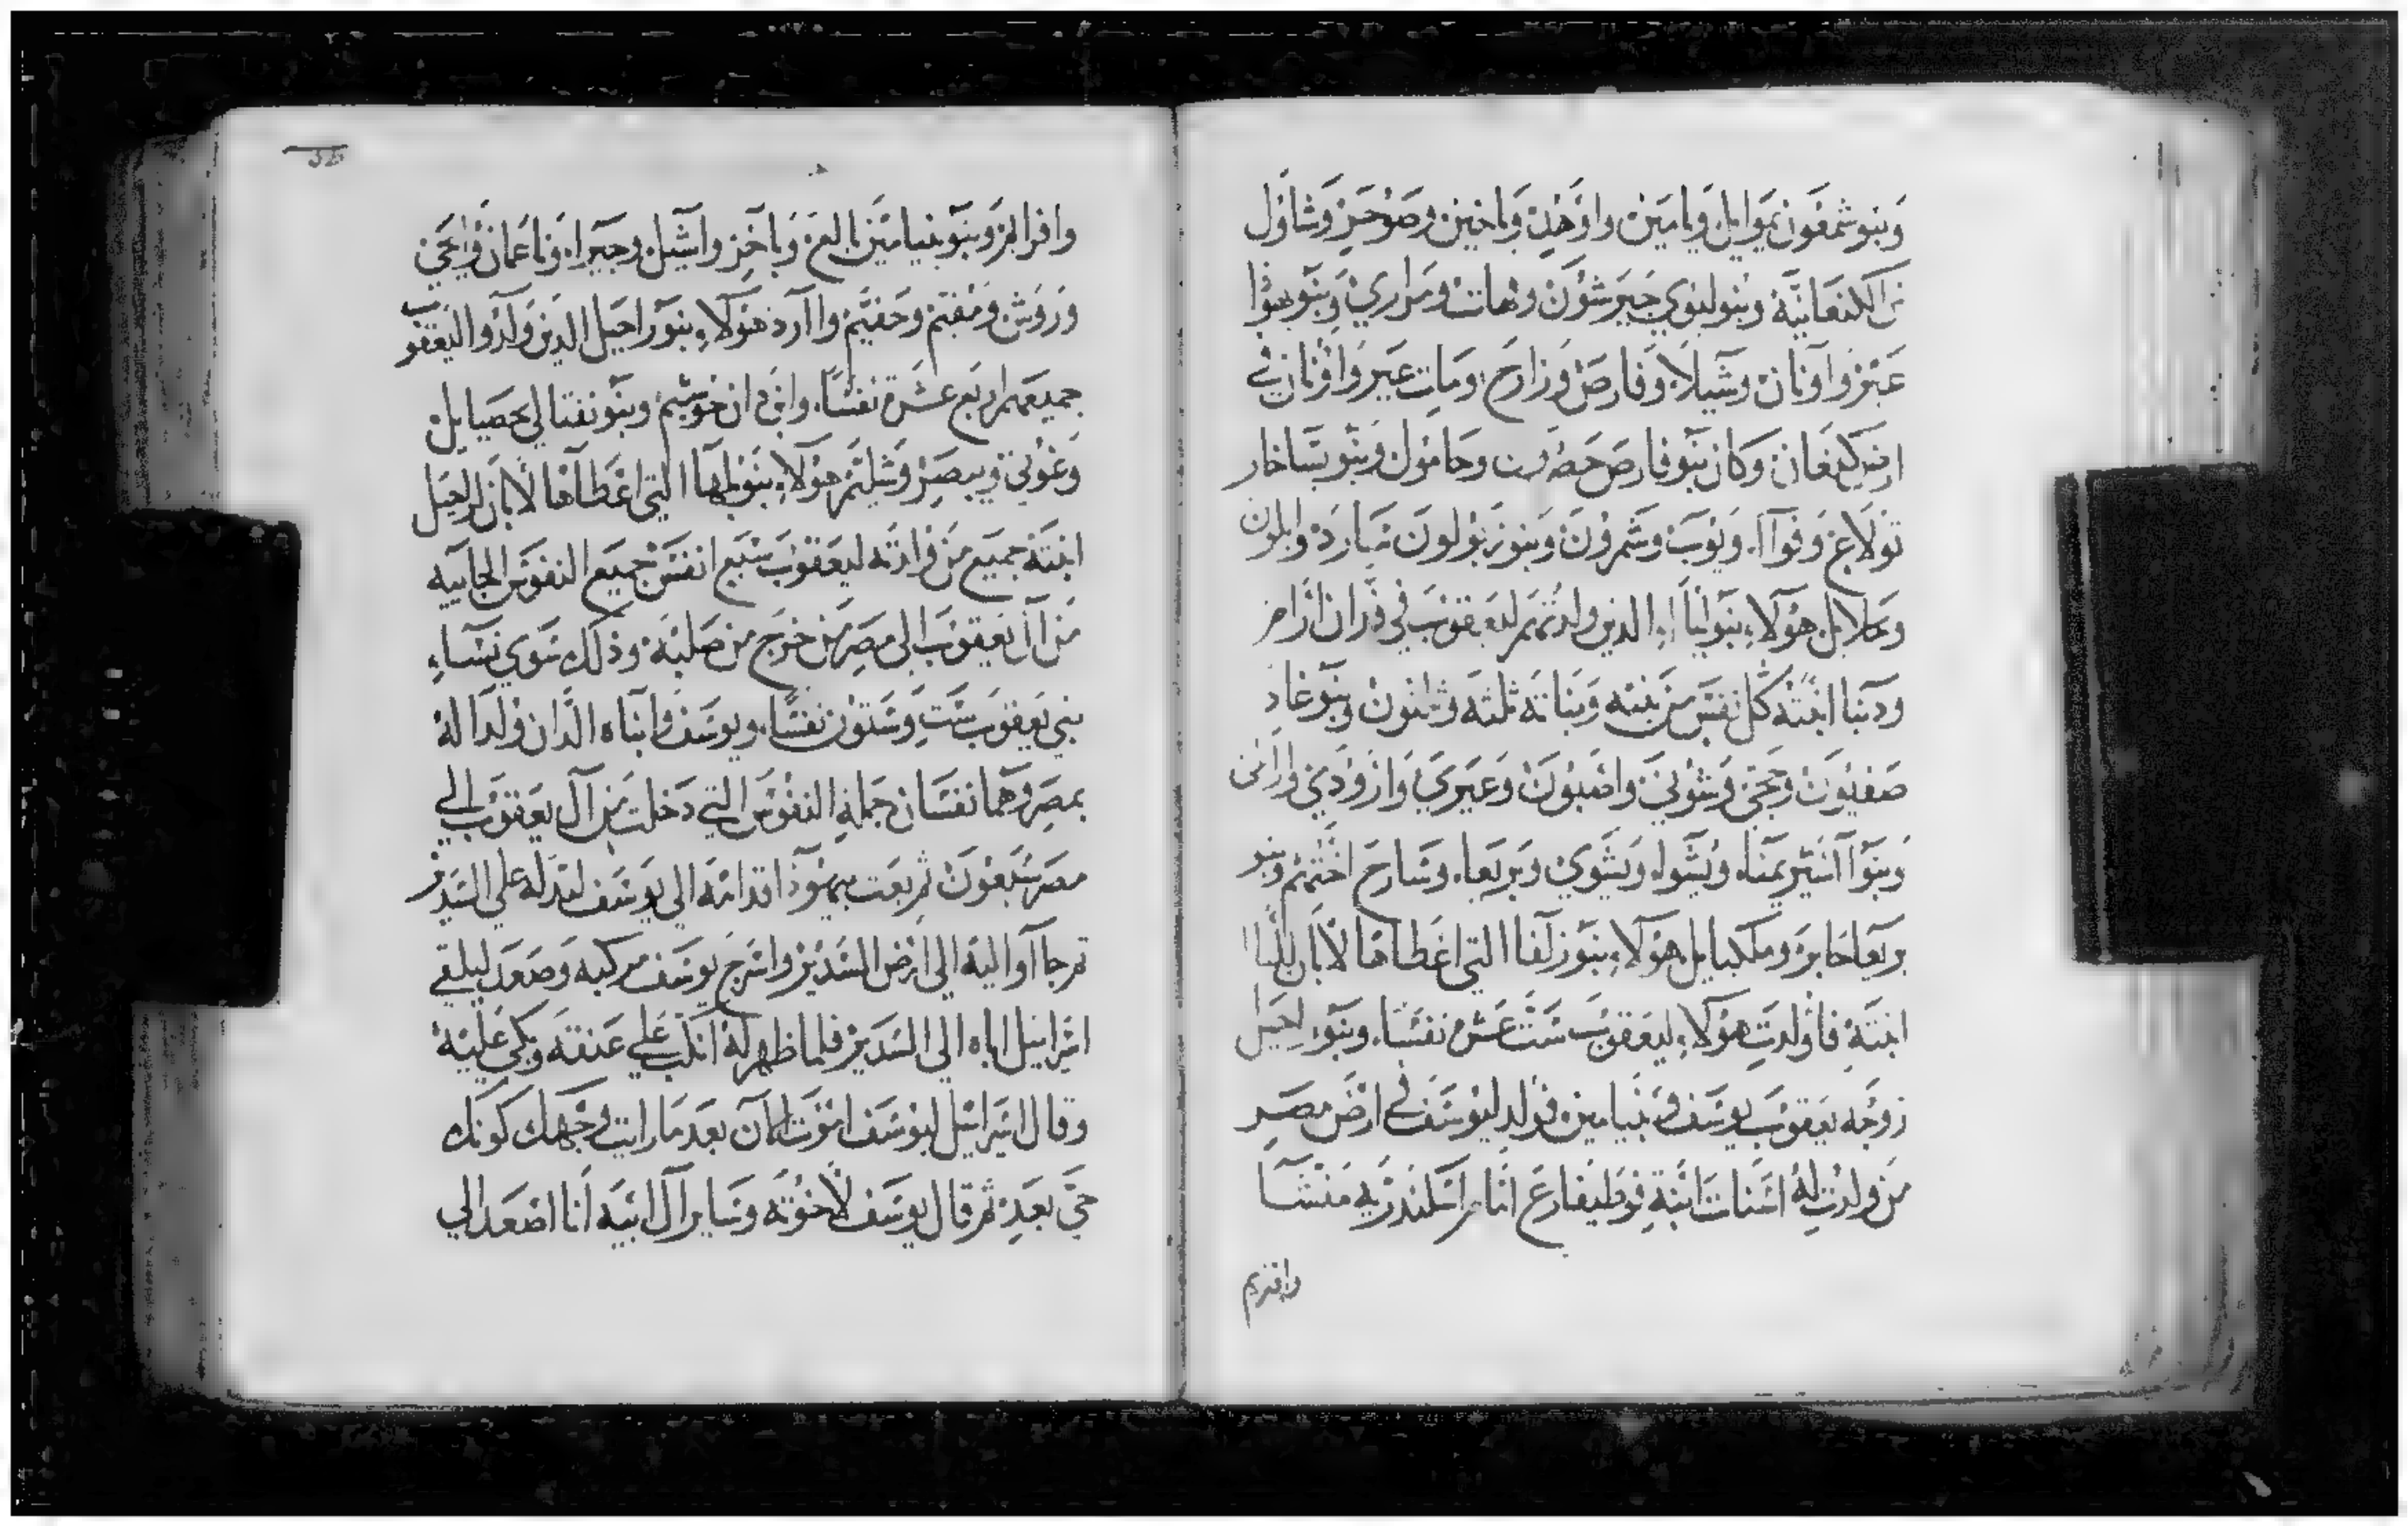 وبنو شمعون يموايل ويامين واوهد وياخين وصوحر وشاول
بن الكنعانيه وبنو ليوي جيرشون وقهات ومراري وبنو يهوذا
عير واونان وشيلا وفارص وزارح ومات عير واونان في
ارض كنعان وكان بنو فارص حصرون وحامول وبنو يساخار
تولاع وفوآا ويوب وشمرون وبنو زبولون سارد وايلون
وحلايل هولاء بنو ليا الذين ولدتهم ليعقوب في فدان ارام
ودينا ابنته كل نفس من بنيه وبناته ثلثه وثلثون وبنو غاد
صفيون وحجي وشوني واصبون وعيري وارودي وارالي
وبنوا اشير يمنا ويشوا ويشوي وبريعا وسارح اختهم وبنو
بريعا حابر وملكيايل هولاء بنو زلفا التي اعطاها لابان لليا
ابنته فاولدت هولاء ليعقوب ست عشر نفسا وبنو راحيل
زوجه يعقوب يوسف وبنيامين فولد ليوسف في ارض مصر
من ولدت له اسنات ابنة فوطيفارع امام اسكندريه منشا
وافريم
وافرايم وبنو بنيامين بالع وباخر واشبيل وجيرا وناعمان وايحي
وروش ومفيم وحفيم واارد هولاء بنو راحيل الذين ولدوا ليعقوب
جميعهم اربع عشرة نفسا وابن دان خوشيم وبنو نفتالي يحصيايل
وغوني ويبصر وشليم هولاء بنو بلها التي اعطاها لابان لراحيل
ابنته جميع من ولدته ليعقوب سبع انفس جميع النفوس الجاييه
من آل يعقوب الى مصر من خرج من صلبه وذلك سوي نساء
بني يعقوب ست وستون نفسا ويوسف وابناه الذان ولدا له
بمصر وهما نفسان جملة النفوس التي دخلت من آل يعقوب الي
مصر سبعون ثم بعت بيهوذا قدامه الى يوسف ليدله علي السدير
ثم جاآوا اليه الي ارض السدير واسرج يوسف مركبه وصعد ليلقي
اسراييل اباه الي السدير فلما ظهر له انكب علي عنقه وبكي عليه
وقال اسراييل ليوسف اموت الان بعد ما رايت وجهك كونك
حي بعد ثم قال يوسف لاخوته وساير آل ابيه انا اصعد الي